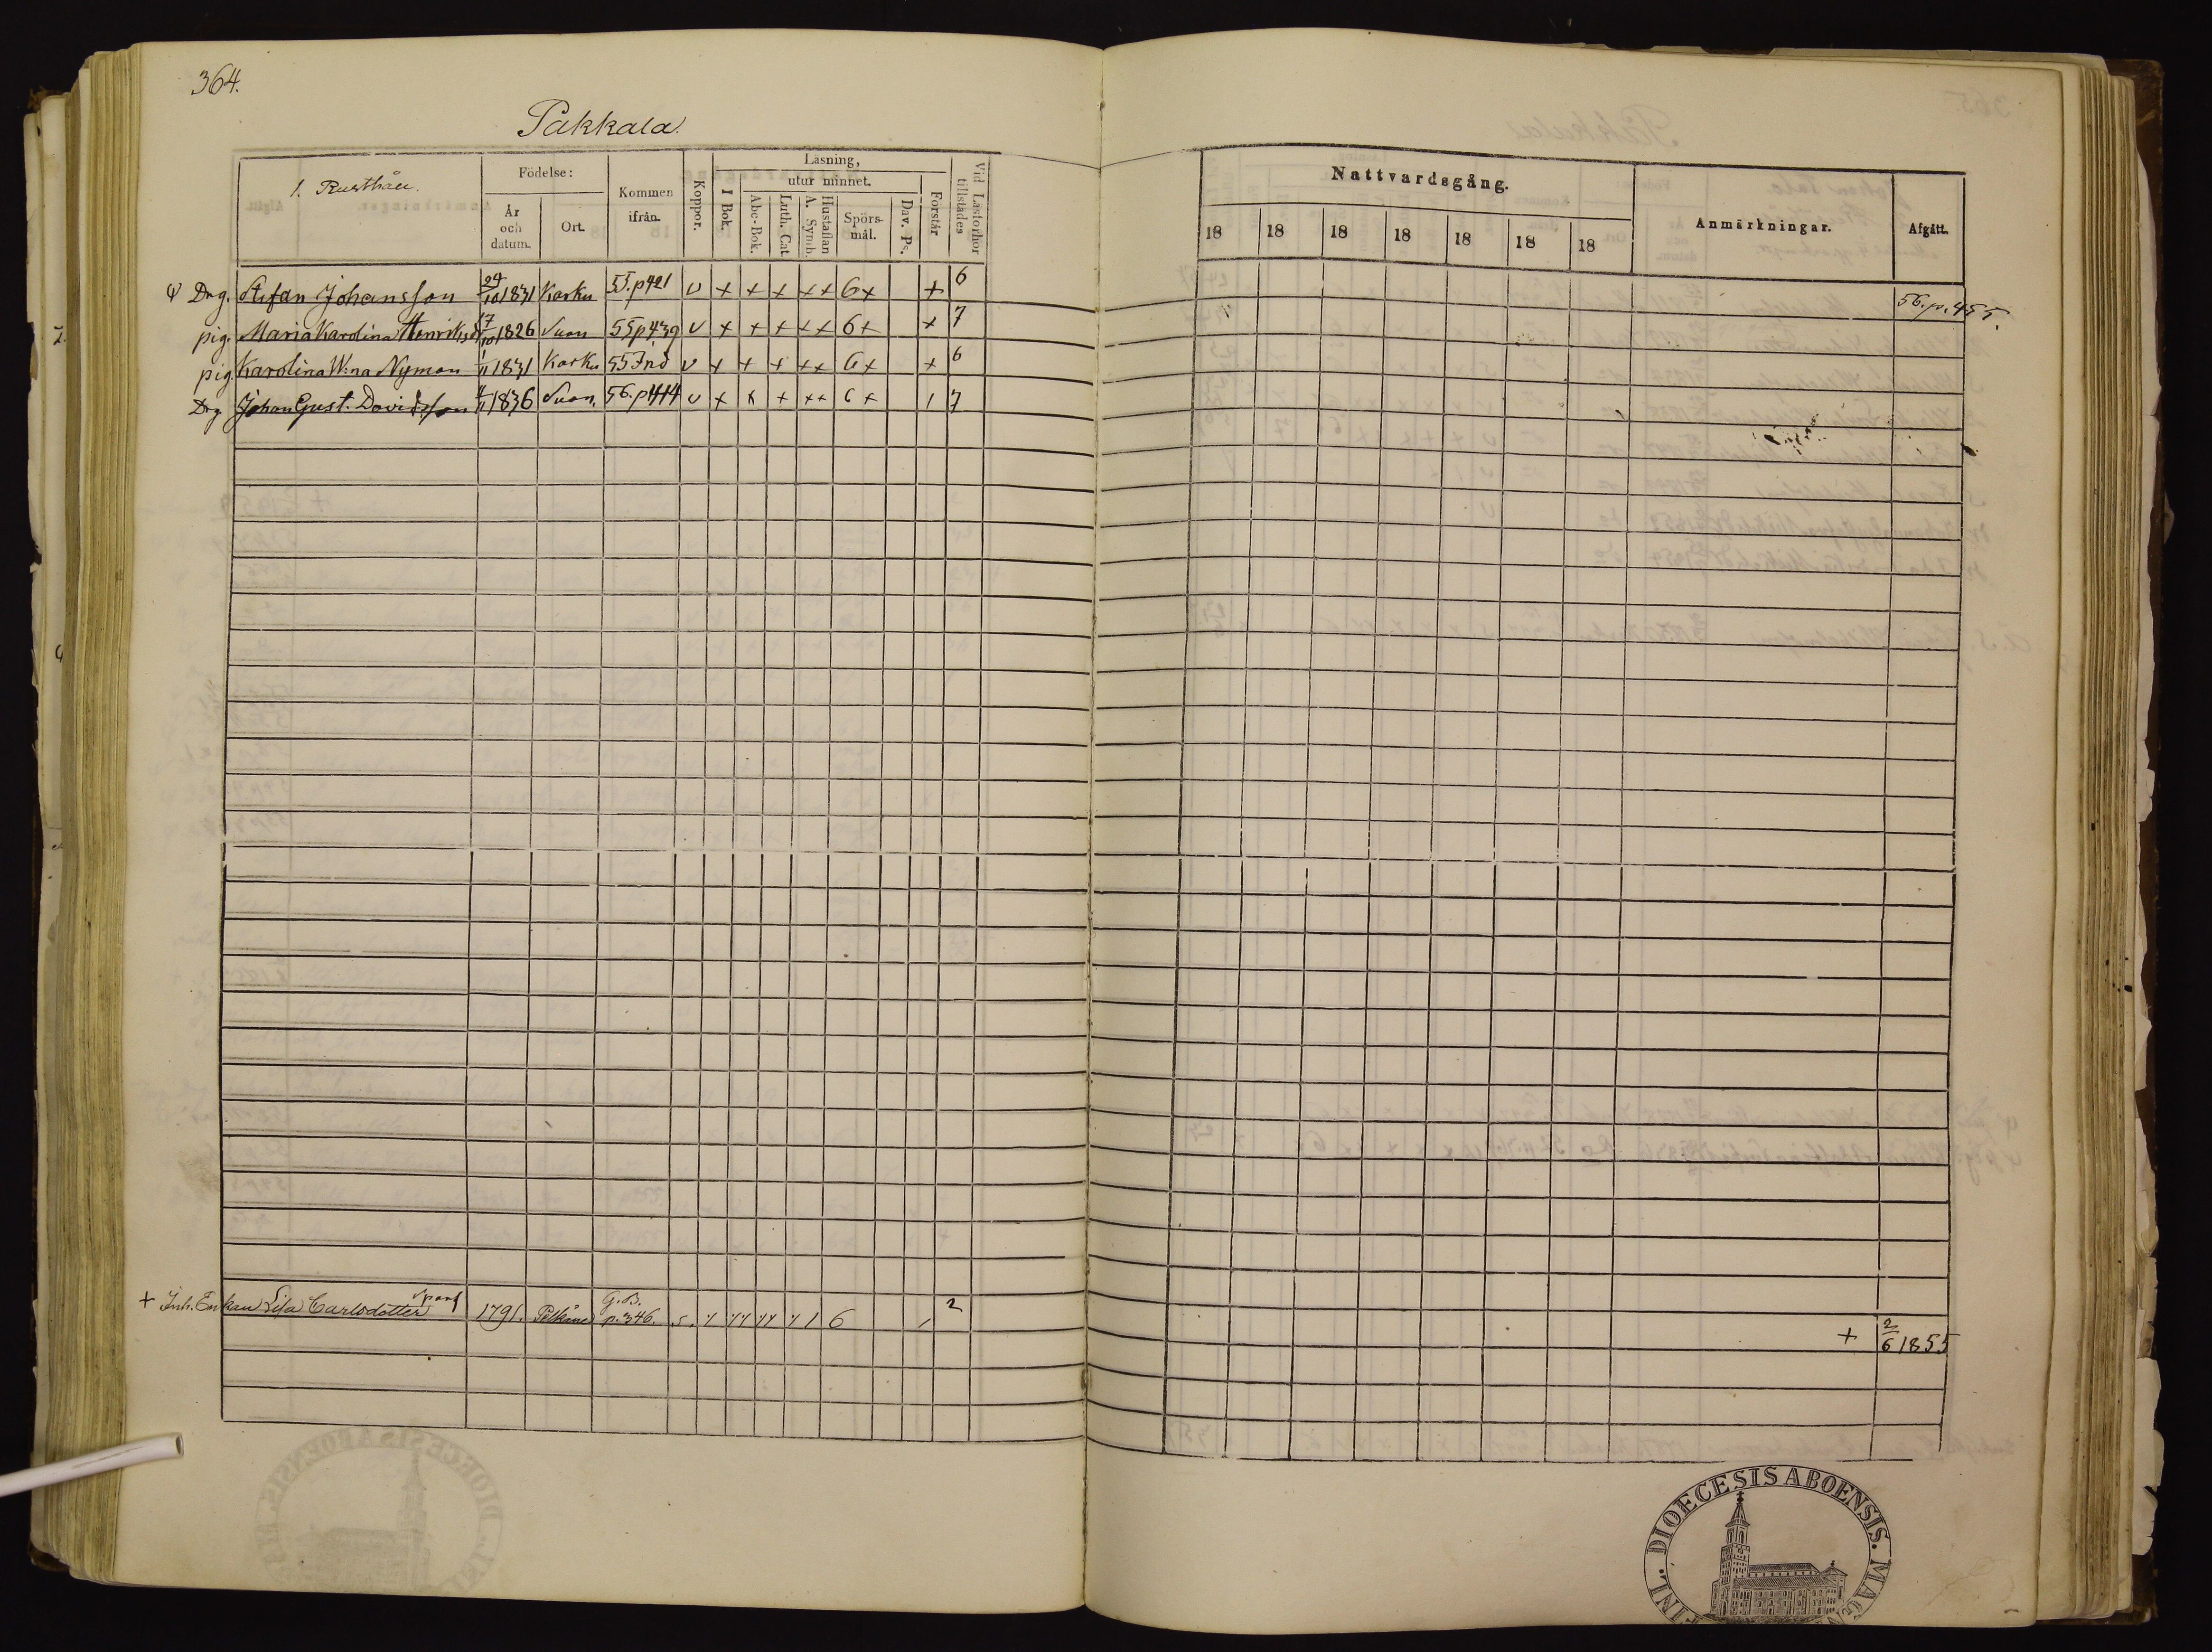 364.
Pakkala.
1. Rusthåll.
Födelse:
År och datum.
Ort.
Kommen ifrån.
Koppor.
Läsning,
I Bok.
utur minnet.
Abc-Bok.
Luth. Cat.
Hustaflan A. Symb.
Spörsmål.
Dav. Ps.
Förstår.
Vid Läsförhör tillstädes
Nattvardsgång.
18 18 18 18 18 18 18
Anmärkningar.
Afgått.
Drg. Stefan Johansson 24/10 1831 Karku 55.p421 v + + + ++ 6+ + 6 56.p.455.
pig. Maria Karolina Henriksd 17/10 1826 Suon 55p439 v + + + ++ 6+ + 7
pig. Karolina W:na Nyman 1/11 1831 Karku 55Ind v + + + ++ 6+ + 6
Drg Johan Gust. Davidsson 4/11 1836 Suon. 56.p414 v + + + ++ 6+ 1 7
+ Inh. Enkan Lisa Carlsdotter 1791. Pelkäne G.B. p.346. 1 6 2 + 2/6 1855
DIOECESIS ABOENSIS. MAG
FINL.